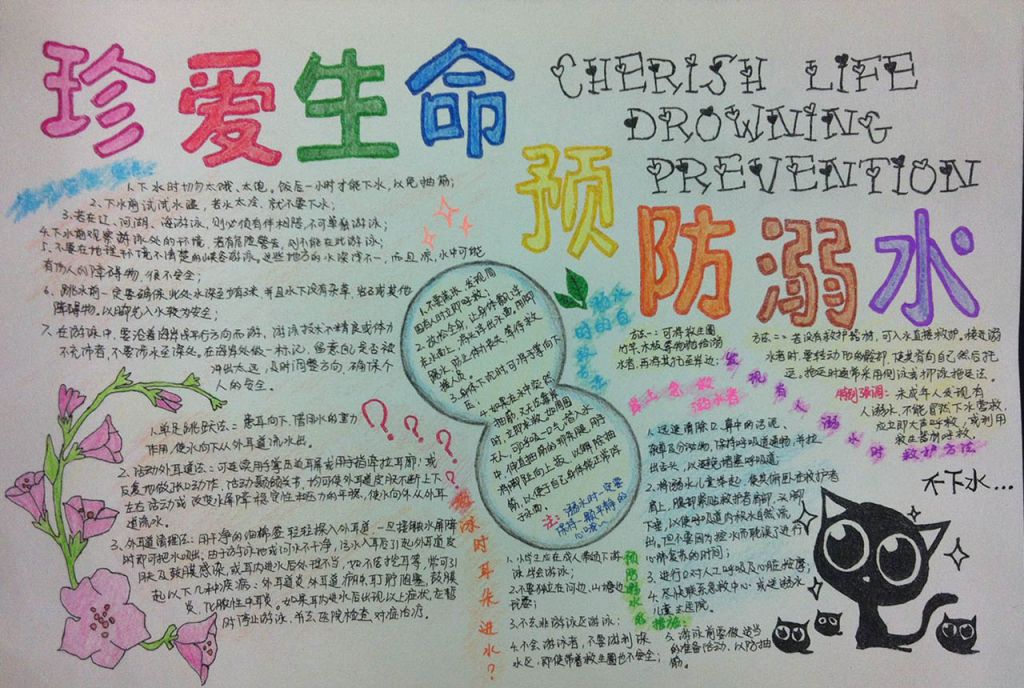 珍爱生命
CHERISH LIFE
DROWNING
PREVENTION
预防溺水
1.下水时切勿太饿、太饱。饭后一小时才能下水,以免抽筋;
2.下水前试试水温,若水太冷,就不要下水;
3.若在江、河、湖、海游泳,则必须有伴相陪,不可单独游泳;
4.下水前观察游泳处的环境,若有危险警告,则不能在此游泳;
5.不要在地理环境不清楚的峡谷游泳。这些地方的水深浅不一,而且凉,水中可能
有伤人的障碍物,很不安全;
6.跳水前一定要确保此处水深至少有3米,并且水下没有杂草、岩石或其他
障碍物。以脚先入水较为安全;
7.在海中游泳,要沿着海岸线平行方向而游,游泳技术不精良或体力
不充沛者,不要涉水至深处。在海岸做一标记,留意自己是否被
冲出太远,及时调整方向,确保个
人的安全。
溺水
时的自
救方法
1.不要慌张,发现周
围有人时立即呼救;
2.放松全身,让身体飘浮
在水面上,将头部浮出水面,用脚
踢水,防止体力丧失,等待救
援人员。
3.身体下沉时,可将手掌向下
压;
4.如果在水中突然
抽筋,又无法靠岸
时,立即求救。如周围
无人,可深吸一口气潜入水
中,伸直抽筋的那条腿,用手
将脚趾向上扳,以解除抽
筋。
注:溺水时一定要
保持一颗平静的
心哦~
方法一:可将救生圈
竹竿、木板等物抛给溺
水者,再将其拖至岸边;
方法二:若没有救护器材,可入水直接救护。接近溺
水者时,要转动他的髋部,使其背向自己然后拖
运。拖运时通常采用侧泳或仰泳拖运法。
特别强调:未成年人发现有
人溺水,不能冒然下水营救,
应立即大声呼救,或利用
救生器材呼救
发现有人溺水时救护方法
岸上急救
溺水者
1.迅速清除口、鼻中的污泥、
杂草及分泌物,保持呼吸道通畅,并拉
出舌头,以避免堵塞呼吸道
2.将溺水儿童举起,使其俯卧在救护者
肩上,腹部紧贴救护者肩部,头脚
下垂,以使呼吸道内积水自然流
出,但不要因为控水而耽误了进行
心肺复苏的时间;
3.进行口对人工呼吸及心脏按摩;
4.尽快联系急救中心或送溺水
儿童去医院。
不下水...
1.单足跳跃法:患耳向下,借用水的重力
作用,使水向下从外耳道流水出。
2.活动外耳道法:可连续用手掌压迫耳屏或用手指牵拉耳廓;或
反复地做张口动作,活动颞颌关节,均可使外耳道皮肤不断上下
左右活动或改变水屏障稳定性和压力的平衡,使水向外从外耳
道流水。
3.外耳道清理法:用干净的细棉签轻轻探入外耳道,一旦接触水屏障
时即可把水吸出。由于游泳池或河水不干净,污水入耳后引起外耳道皮
肤及鼓膜感染,或耳内进水后处理不当,如不洁挖耳等,常可引
起以下几种疾病:外耳道炎、外耳道疖肿、耵聍阻塞、鼓膜
炎、化脓性中耳炎。如果耳内进水后出现以上症状,应暂
时停止游泳,并去医院检查、对症治疗。
???
游泳时耳朵进水?
预防溺水的措施:
1.小学生应在成人带领下游
泳、学会游泳;
2.不要独自在河边、山塘边
玩耍;
3.不去非游泳区游泳;
4.不会游泳者,不要游到深
水区,即使带着救生圈也不安全;
5.游泳前要做适当
的准备活动,以防抽
筋。